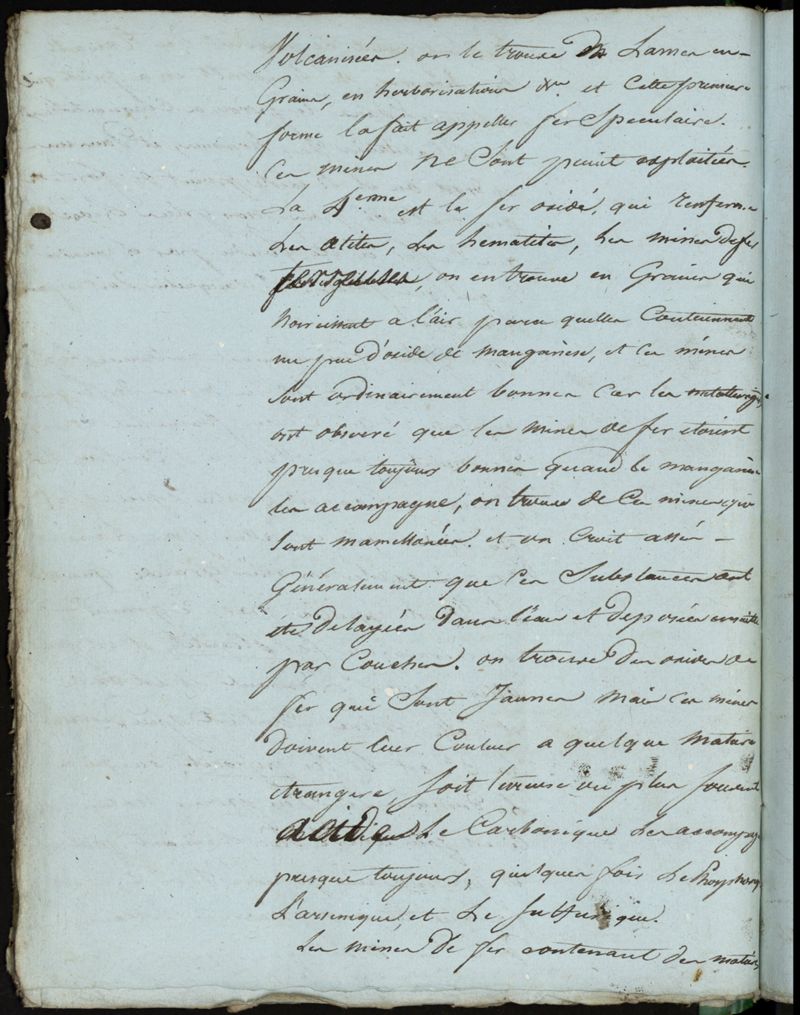 Volcanisées. on le trouve en Lames en
Grains, en herborisations &a et cette premiere
forme la fait appeller fer Speculaire.
Ces mines ne Sont point exploitées.
La 4eme est le fer oxidé, qui renferme
Les atites, les hematites, les mines de fer
, on en trouve en Graines qui
noircissent a l'air parce quelles Contiennent
un peu d'oxide de manganese, et ces mines
sont ordinairement bonnes car les metallurgis
ont observé que les mines de fer etoient
presque toujours bonnes quand le manganese
les accompagne, on trouve de Ces mines qui
Sont mamellonées et on Croit assés
Généralement que ces Substances ont
été delayées dans l'eau et deposées ensuite
par Couches. on trouve des oxides de
fer qui Sont Jaunes mais ces mines
doivent leur Couleur a quelque matiere
etrangere, soit terreuse ou plus souvent
acide Le Carbonique les accompag
presque toujours, quelques fois Le Phosphoriq
L'arsenique, et Le Sulfurique.
Les mines de fer contenant des matier